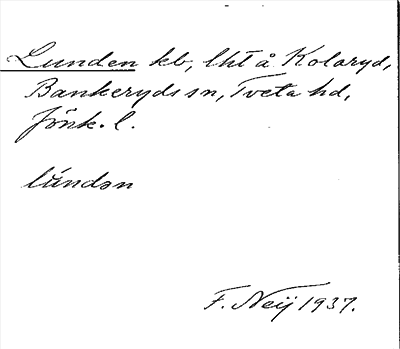 Lunden kb, lht å Kolaryd,
Bankeryds sn, Tveta hd,
Jönk. l.
lúndən
F. Neij 1937.